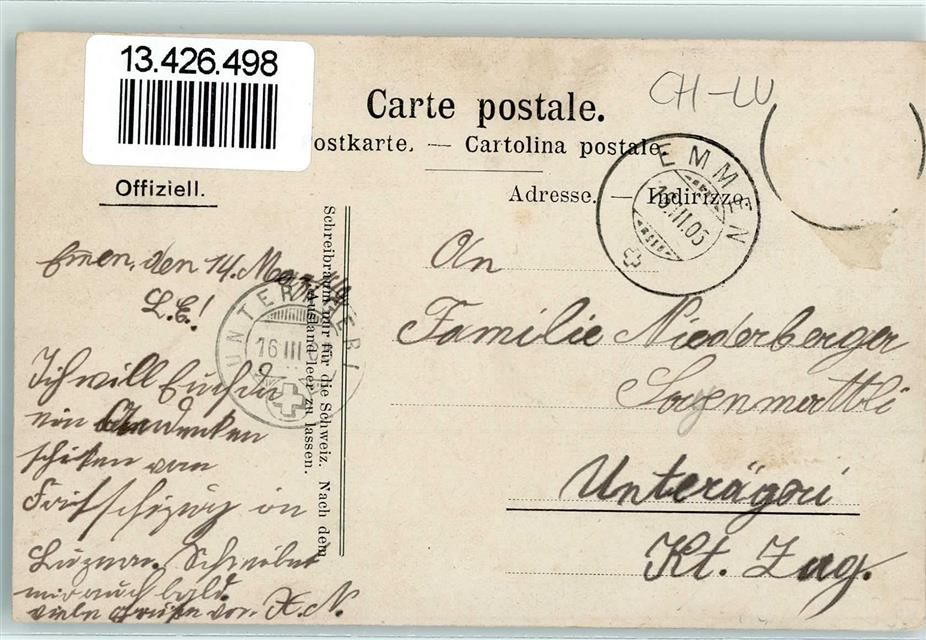 13.426.498
CH-LU
Carte postale.
ostkarte. — Cartolina postale.
Offiziell.
Adresse. — Indirizzo.
EMMEN
III.05
UNTERÄGERI
16 III
Schreibraum nur für die Schweiz. Nach dem
Ausland leer zu lassen.
Emen, den 14. März
L. E.!
Ich will Euch
ein Andenken
schiken vom
Fritschizug in
Luzern. Schreibet
mir auch bald.
viele Grüße von X. N.
An
Familie Niederberger
Unterägeri
Kt. Zug.